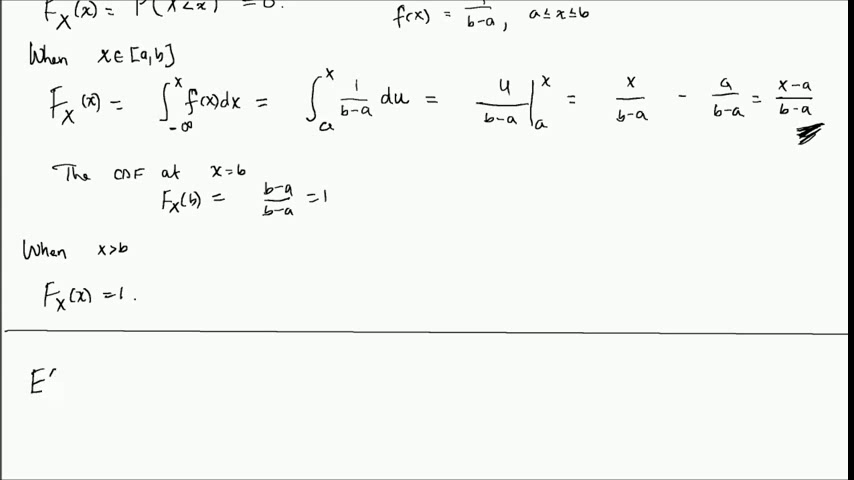 F_X(x) = P(X<x) = 0.
f(x) = 1/(b-a), a ≤ x ≤ b
When x∈[a,b]
F_X(x) = ∫_{-∞}^{x} f(x)dx = ∫_{a}^{x} 1/(b-a) du = u/(b-a) |_{a}^{x} = x/(b-a) - a/(b-a) = (x-a)/(b-a)
The CDF at x=b
F_X(b) = (b-a)/(b-a) = 1
When x>b
F_X(x) = 1.
E